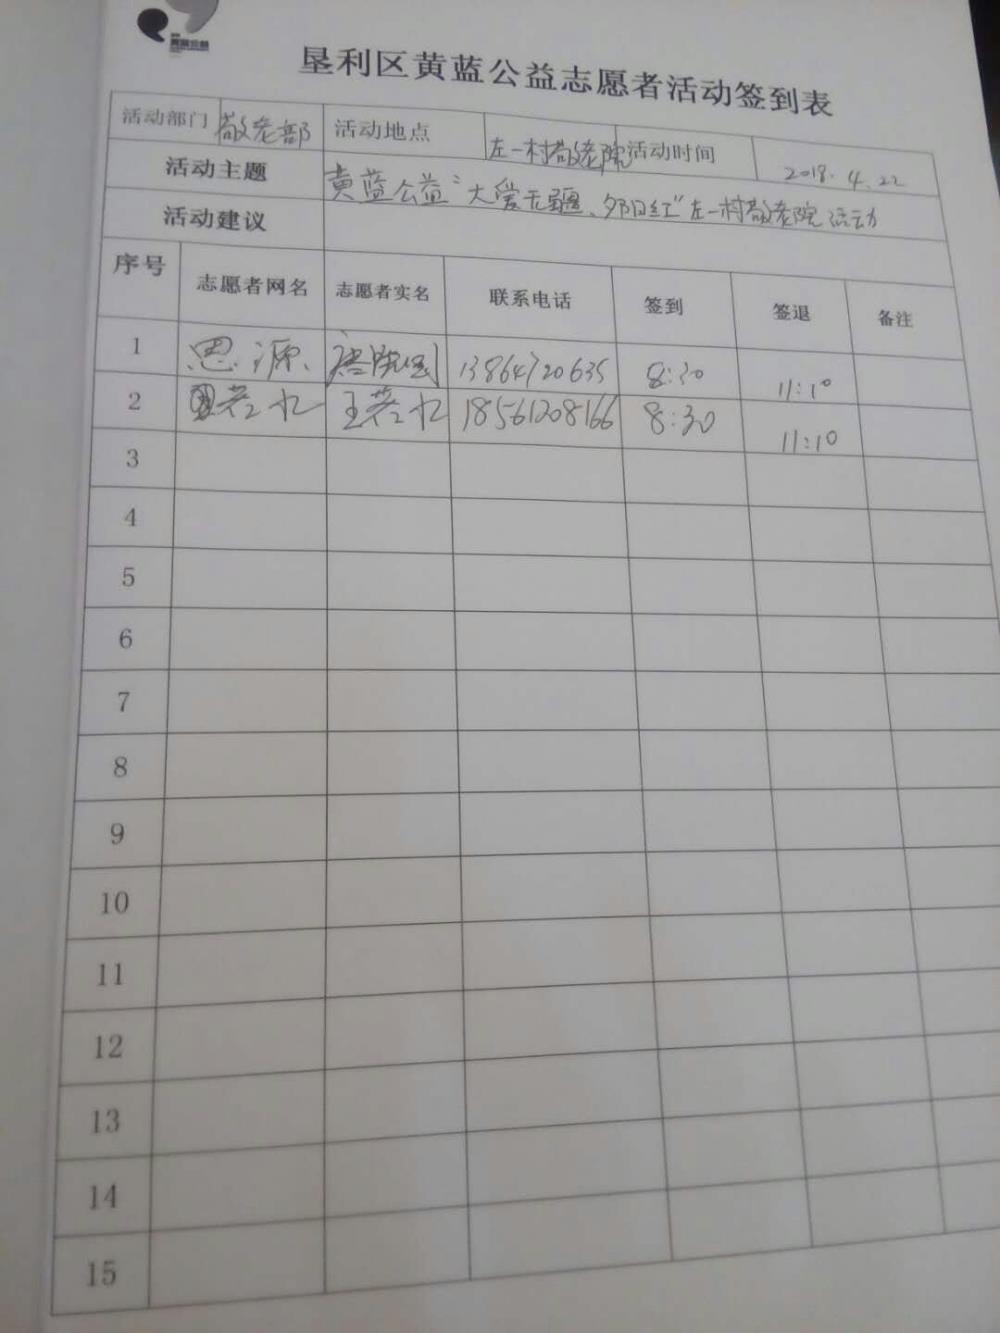 垦利区黄蓝公益志愿者活动签到表
活动部门 敬老部 活动地点 左一村敬老院 活动时间 2018.4.22
活动主题 黄蓝公益“大爱无疆、夕阳红”左一村敬老院活动
活动建议
序号 志愿者网名 志愿者实名 联系电话 签到 签退 备注
1 思源 13864720635 8:30 11:10
2 若水 王若水 18561208166 8:30 11:10
3
4
5
6
7
8
9
10
11
12
13
14
15